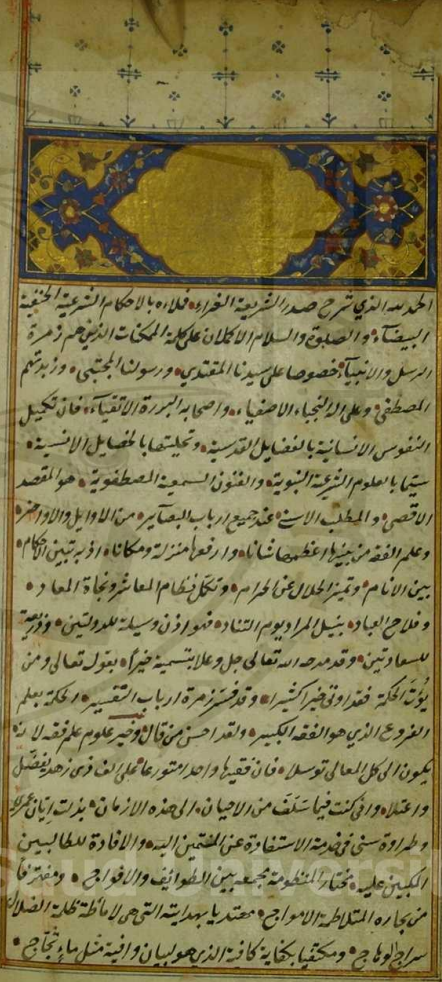 الحمد لله الذي شرح صدر الشريعة الغراء فملاءه بالاحكام الشرعية الحنفية
البيضاء والصلوة والسلام الاكملان على كلمة الممكنات الذين هم زمرة
الرسل والانبياء خصوصا على سيدنا المقتدى ورسولنا المجتبى وزبدتهم
المصطفى وعلى اله النجباء الاصفياء واصحابه البررة الاتقياء فان تكميل
النفوس الانسانية بالفضايل القدسية وتحليتها بالخصايل الانسية
سيما بالعلوم الشرعية النبوية والفنون السمعية المصطفوية هو المقصد
الاقصى والمطلب الاسنى عند جميع ارباب البصاير من الاوايل والاواخر
وعلم الفقه من بينها اعظمها شانا وارفعها منزلة ومكانا اذ به تبين الاحكام
بين الانام وتميز الحلال عن الحرام وتكمل نظام المعاش ونجاة المعاد
وفلاح العباد بنيل المراد يوم التناد فهو اذن وسيلة للدولتين وذريعة
للسعادتين وقد مدحه الله تعالى جل وعلا بتسمية خيرا بقوله تعالى ومن
يؤت الحكمة فقد اوتي خيرا كثيرا وقد فسر زمرة ارباب التفسير الحكمة بعلم
الفروع الذي هو الفقه الكبير ولقد احسن من قال وخير علوم علم فقه لانه
يكون الى كل المعالي توسلا فان فقيها واحدا متورعا على الف ذي زهد يفضل
واعتلا واني كنت فيما سلف من الاحيان الى هذه الازمان بذلت ابان عمري
وطراوة سني في خدمة الاستفادة عن المنتمين اليه والافادة للطالبين
المكبين عليه مختار المنظومة بجمعه بين الطوايف والافواج ومغترفا
من بحاره المتلاطمة الامواج مهتديا بهدايته التي هي لاماطة ظلمة الضلالة
سراج الوهاج ومكتفيا بكفاية كافية الذي هو لبيان وافية مثل ماء ثجاج
Saud University